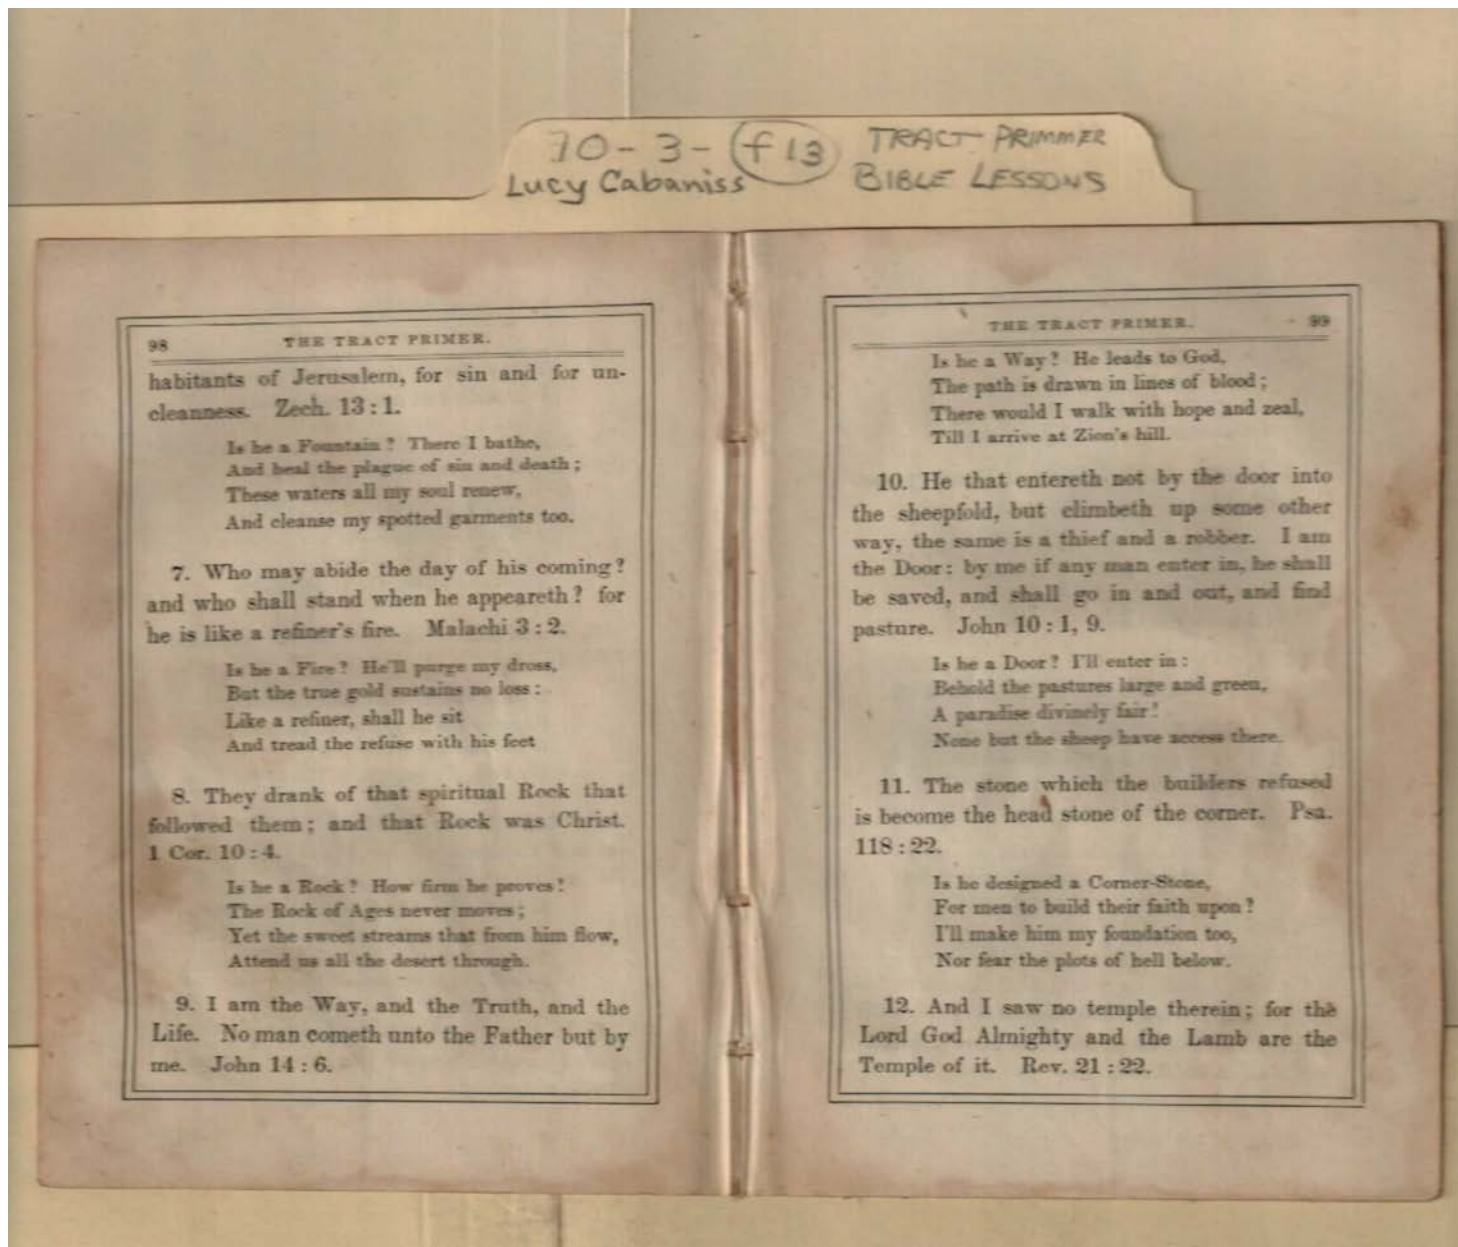 10-3-(f13) TRACT PRIMMER
Lucy Cabaniss BIBLE LESSONS
98 THE TRACT PRIMER.
habitants of Jerusalem, for sin and for un-
cleanness. Zech. 13 : 1.
Is he a Fountain? There I bathe,
And heal the plague of sin and death;
These waters all my soul renew,
And cleanse my spotted garments too.
7. Who may abide the day of his coming?
and who shall stand when he appeareth? for
he is like a refiner's fire. Malachi 3 : 2.
Is he a Fire? He'll purge my dross,
But the true gold sustains no loss:
Like a refiner, shall he sit
And tread the refuse with his feet
8. They drank of that spiritual Rock that
followed them; and that Rock was Christ.
1 Cor. 10 : 4.
Is he a Rock? How firm he proves!
The Rock of Ages never moves;
Yet the sweet streams that from him flow,
Attend us all the desert through.
9. I am the Way, and the Truth, and the
Life. No man cometh unto the Father but by
me. John 14 : 6.
THE TRACT PRIMER. 99
Is he a Way? He leads to God,
The path is drawn in lines of blood;
There would I walk with hope and zeal,
Till I arrive at Zion's hill.
10. He that entereth not by the door into
the sheepfold, but climbeth up some other
way, the same is a thief and a robber. I am
the Door: by me if any man enter in, he shall
be saved, and shall go in and out, and find
pasture. John 10 : 1, 9.
Is he a Door? I'll enter in:
Behold the pastures large and green,
A paradise divinely fair!
None but the sheep have access there.
11. The stone which the builders refused
is become the head stone of the corner. Psa.
118 : 22.
Is he designed a Corner-Stone,
For men to build their faith upon?
I'll make him my foundation too,
Nor fear the plots of hell below.
12. And I saw no temple therein; for the
Lord God Almighty and the Lamb are the
Temple of it. Rev. 21 : 22.